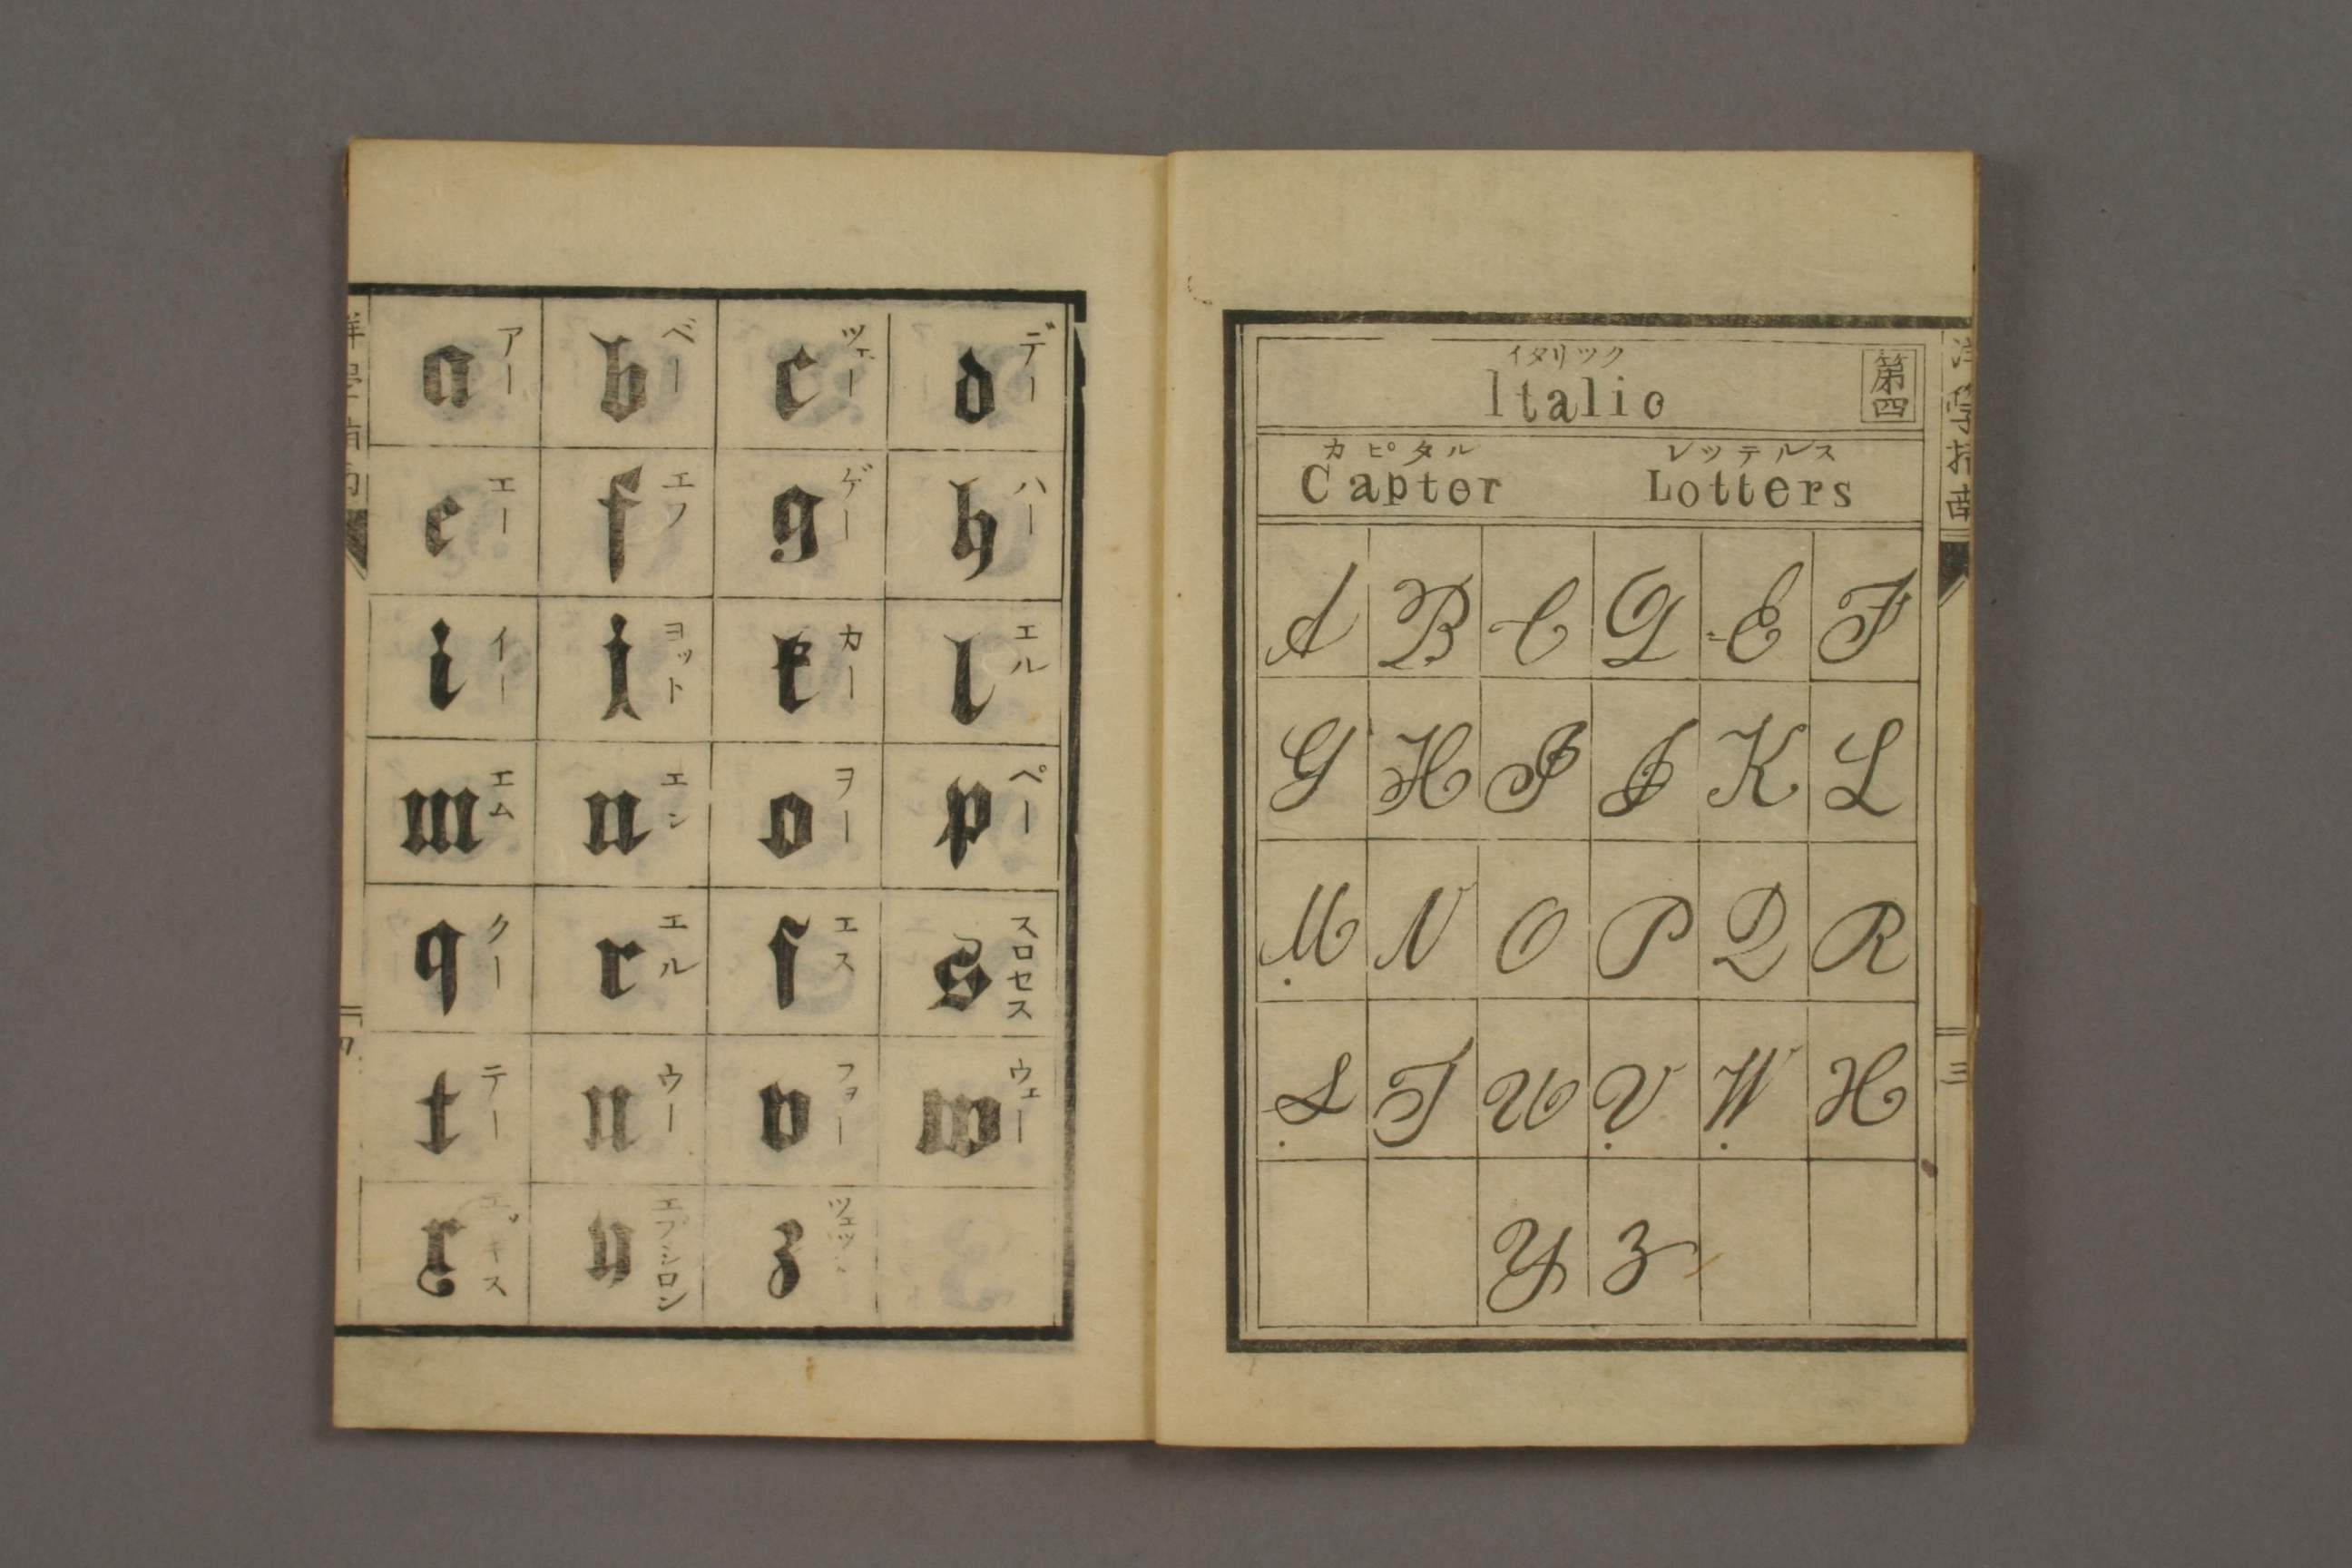 第四
イタリツク
Italio
カピタル レッテルス
Captor Lotters
A B C G E F
G H I J K L
M N O P Q R
S T U V W H
Y Z
三
アー ベー ツェー デー
a b c d
エー エフ ゲー ハー
e f g h
イー ヨット カー エル
i j k l
エム エン ヲー ペー
m n o p
クー エル エス スロセス
q r ſ s
テー ウー フォー ウェー
t u v w
エプシロン
x y z